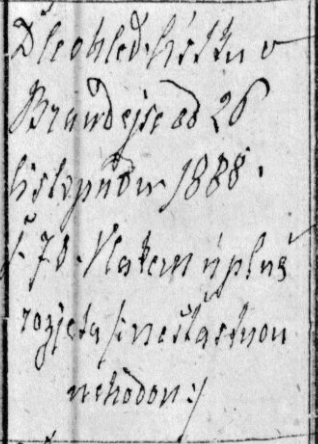 Dle ohled. lístku v
Brandejse od 26
listopadu 1888.
č. 78. Vlakem úplně
rozjeta /: nešťastnou
nehodou :/